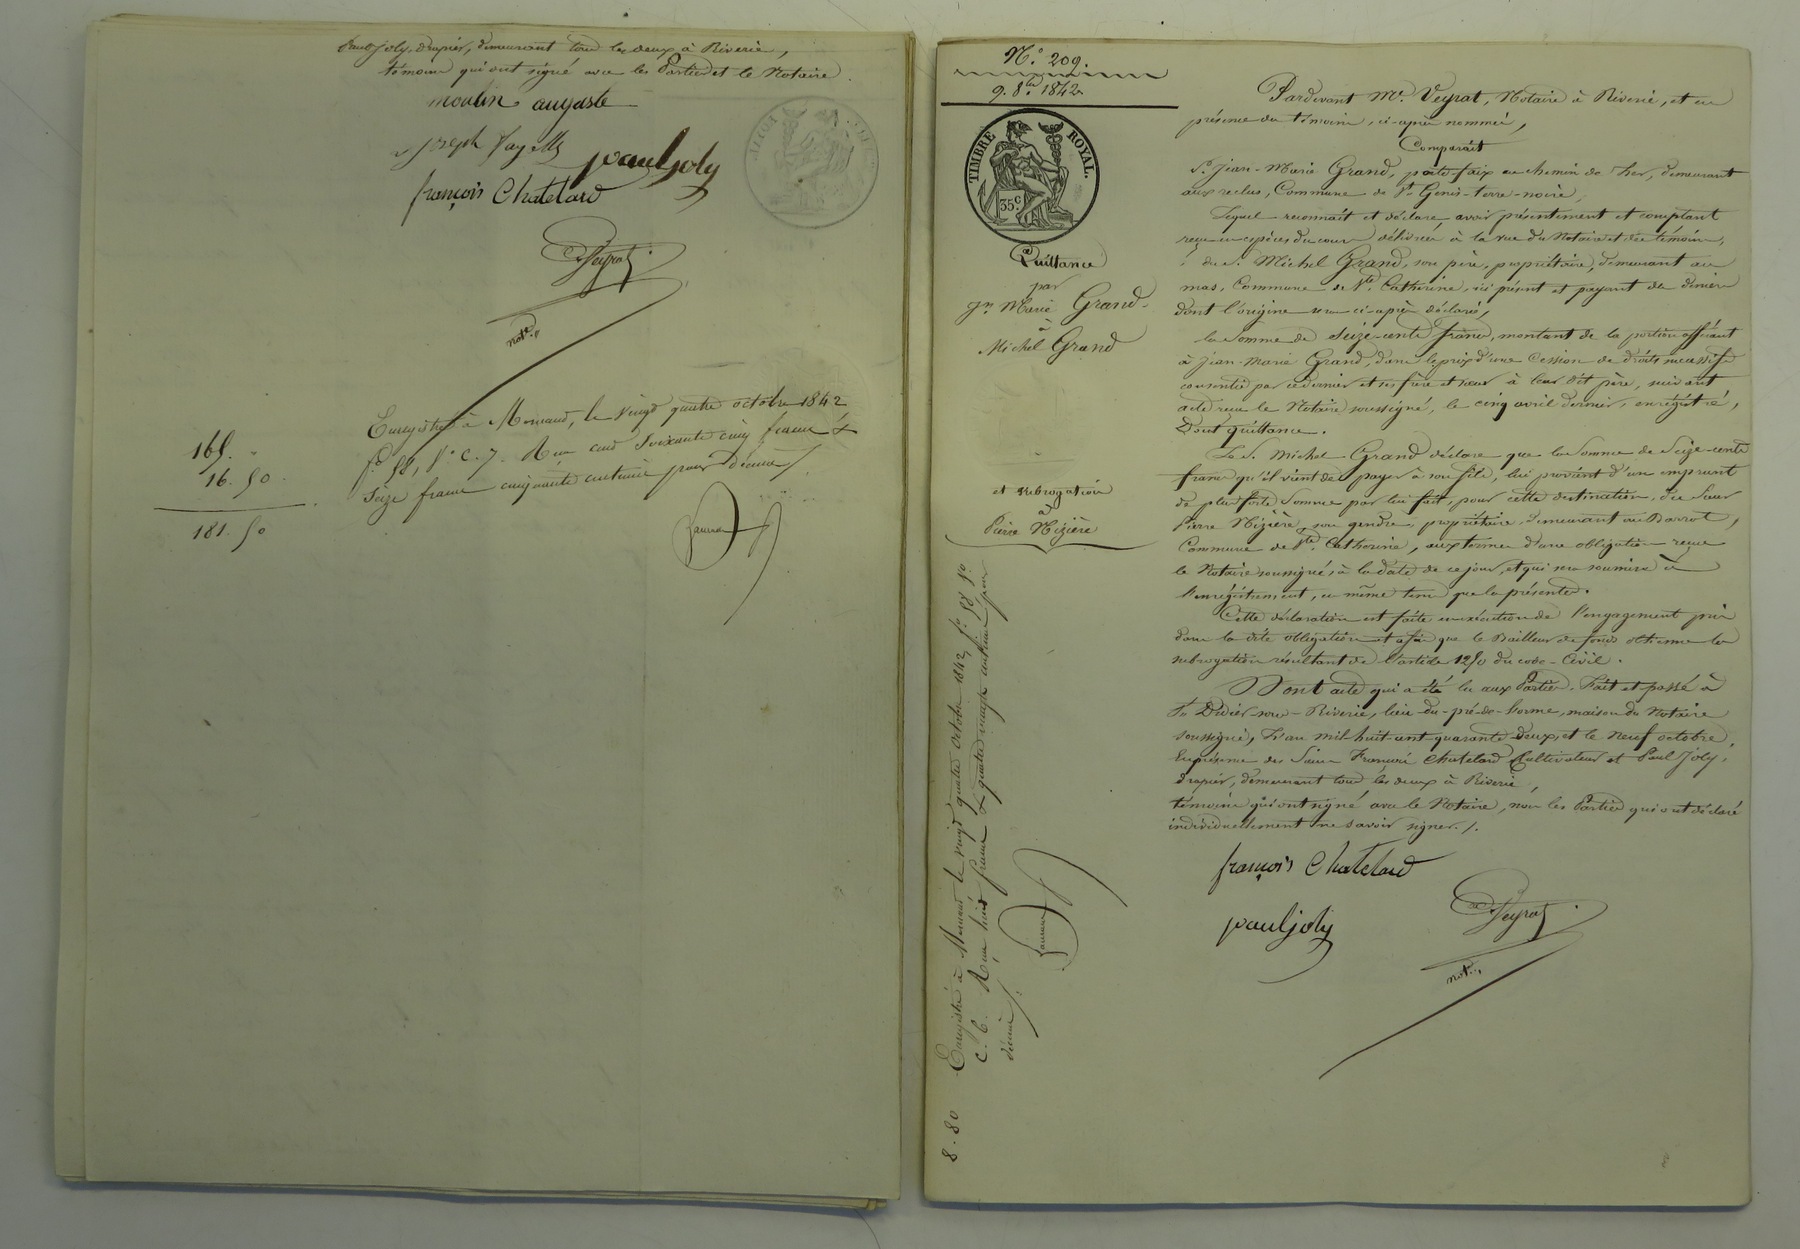 Paul Joly, drapier, demeurant tous les deux à Riverie,
témoins qui ont signé avec les Parties et le Notaire.
moulin auguste
joseph
paul joly
françois Chatelard
Veyrat
not.re
Enregistré à Mornant, le vingt quatre octobre 1842
f.o 58, v.o c. 7. Reçu cent soixante cinq francs &
seize francs cinquante centimes pour décime
165. "
16. 50.
181. 50
N.o 209.
9. 8.bre 1842.
TIMBRE ROYAL.
35 c.
Quittance
par
Jn Marie Grand
à
Michel Grand
et subrogation
à
Pierre Nizière
Enregistré à Mornant le vingt quatre octobre 1842, f.o 58 v.o
c. 6. Reçu huit francs & quatre vingts centimes pour
décime
8. 80
Pardevant M.e Veyrat, Notaire à Riverie, et en
présence des témoins, ci-après nommés,
Comparaît
S.r Jean-Marie Grand, porte-faix au chemin de fer, demeurant
aux reclus, Commune de S.t Genis-terre-noire,
Lequel reconnaît et déclare avoir présentement et comptant
reçu en espèces du cours délivrées à la vue du Notaire et des témoins,
du s. Michel Grand, son père, propriétaire, demeurant au
mas, Commune de S.te Catherine, ici présent et payant de deniers
dont l'origine sera ci-après déclarée,
la somme de seize-cents francs, montant de la portion afférant
à Jean-Marie Grand, dans le prix d'une Cession de droits successifs
consentie par ce dernier et ses frère et sœur à leur dit père, suivant
acte reçu le Notaire soussigné, le cinq avril dernier, enregistré,
Dont quittance.
Le S. Michel Grand déclare que la Somme de Seize-cents
francs qu'il vient de payer à son fils, lui provient d'un emprunt
de plus forte Somme par lui fait, pour cette destination, du Sieur
Pierre Nizière, son gendre, propriétaire, demeurant au Barrot,
Commune de S.te Catherine, aux termes d'une obligation reçue
le Notaire soussigné, à la date de ce jour, et qui sera soumise à
l'enregistrement, en même tems que la présente.
Cette déclaration est faite en exécution de l'engagement pris
dans la dite obligation et afin que le Bailleur de fonds obtienne la
subrogation résultant de l'article 1250 du code-Civil.
Dont acte qui a été lu aux Parties. Fait et passé à
S.t Didier-sous-Riverie, lieu-du-pré-de-l'orme, maison du Notaire
soussigné, L'an mil-huit-cent-quarante-deux, et le neuf octobre,
En présence des Sieurs François Chatelard Cultivateur et Paul Joly,
drapier, demeurant tous les deux à Riverie,
témoins qui ont signé avec le Notaire, non les Parties qui ont déclaré
individuellement ne savoir signer. /.
françois Chatelard
paul joly
Veyrat
not.re